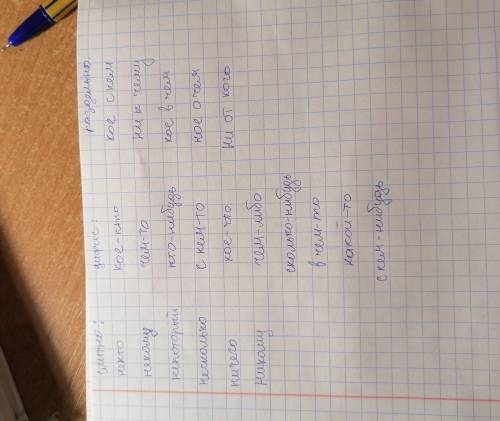 слитно:
некто
некому
некоторый
несколько
ничего
никому
дефис:
кое-кто
чем-то
кто-нибудь
с кем-то
кое-что
чем-либо
сколько-нибудь
в чем-то
какой-то
с кем-нибудь
раздельно:
кое с кем
ни к чему
кое в чем
кое о чем
ни от кого